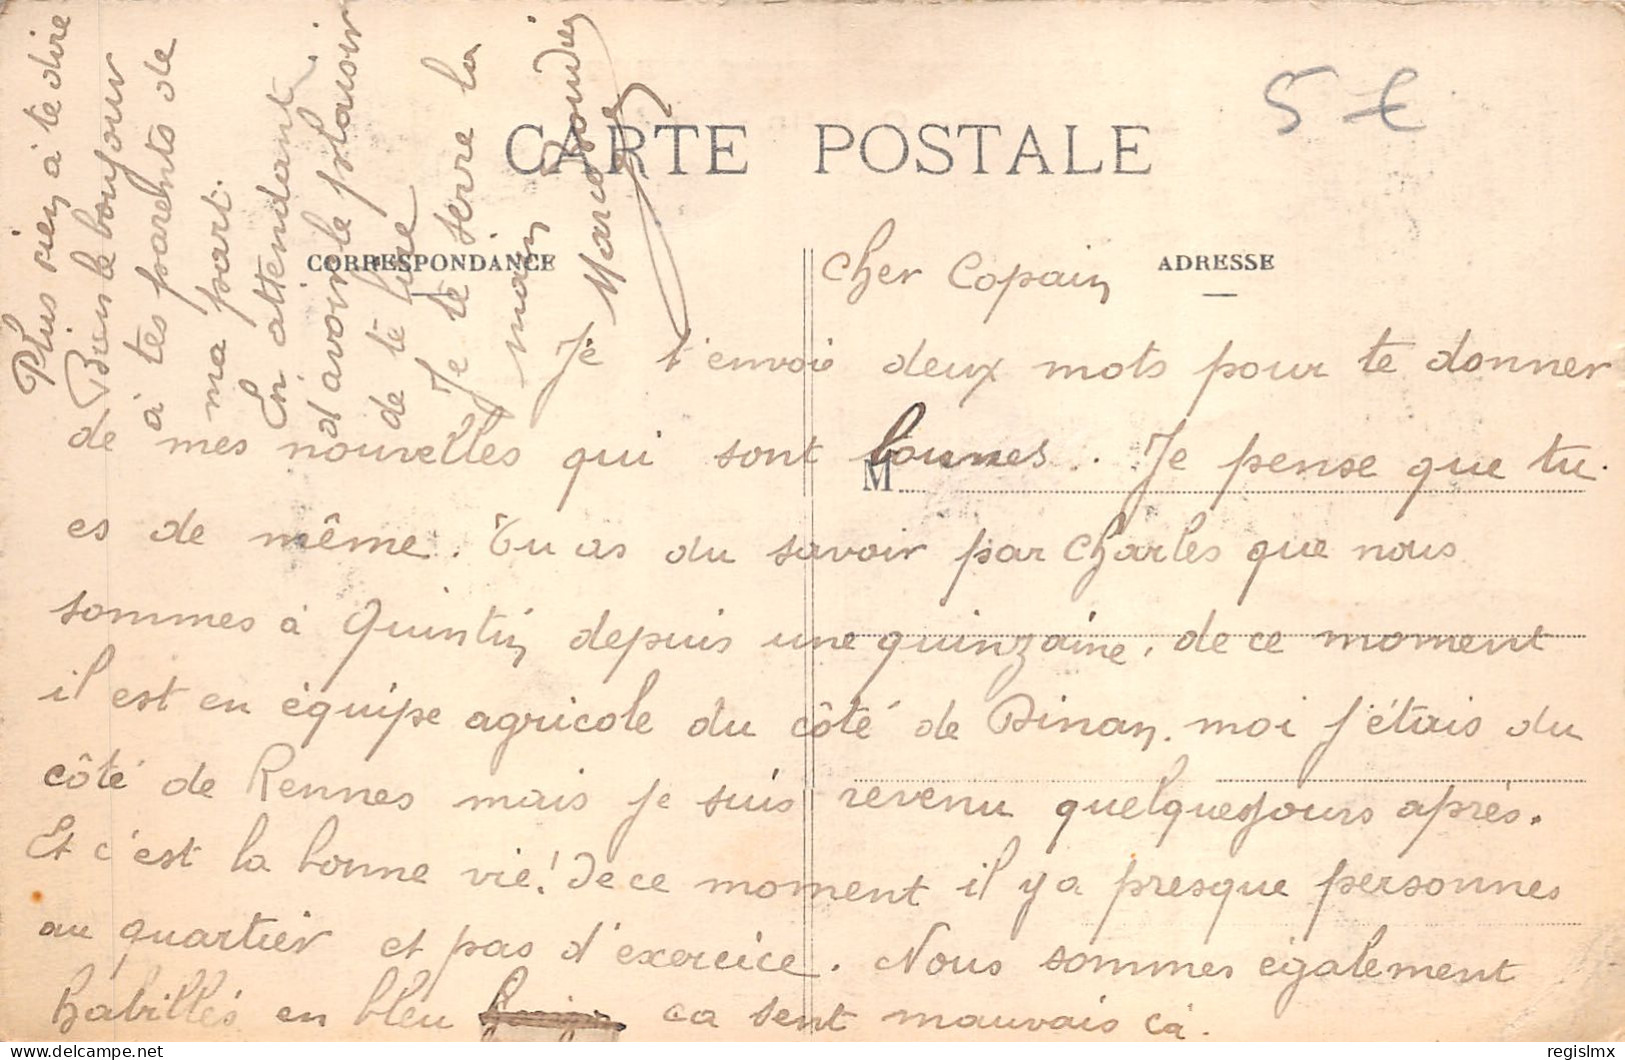 CARTE POSTALE
5 €
CORRESPONDANCE
ADRESSE
M
cher Copain
Je t'envoie deux mots pour te donner
de mes nouvelles qui sont bonnes. Je pense que tu
es de même. Tu as du savoir par Charles que nous
sommes à Quintin depuis une quinzaine. de ce moment
il est en équipe agricole du côté de Dinan. moi j'étais du
côté de Rennes mais je suis revenu quelques jours après.
Et c'est la bonne vie! De ce moment il y a presque personnes
au quartier et pas d'exercice. Nous sommes également
habillés en bleu ca sent mauvais ca.
Plus rien à te dire
Bien le bonjour
à tes parents de
ma part.
En attendant
d'avoir le plaisir
de te lire
Je te serre la
main
regislmx